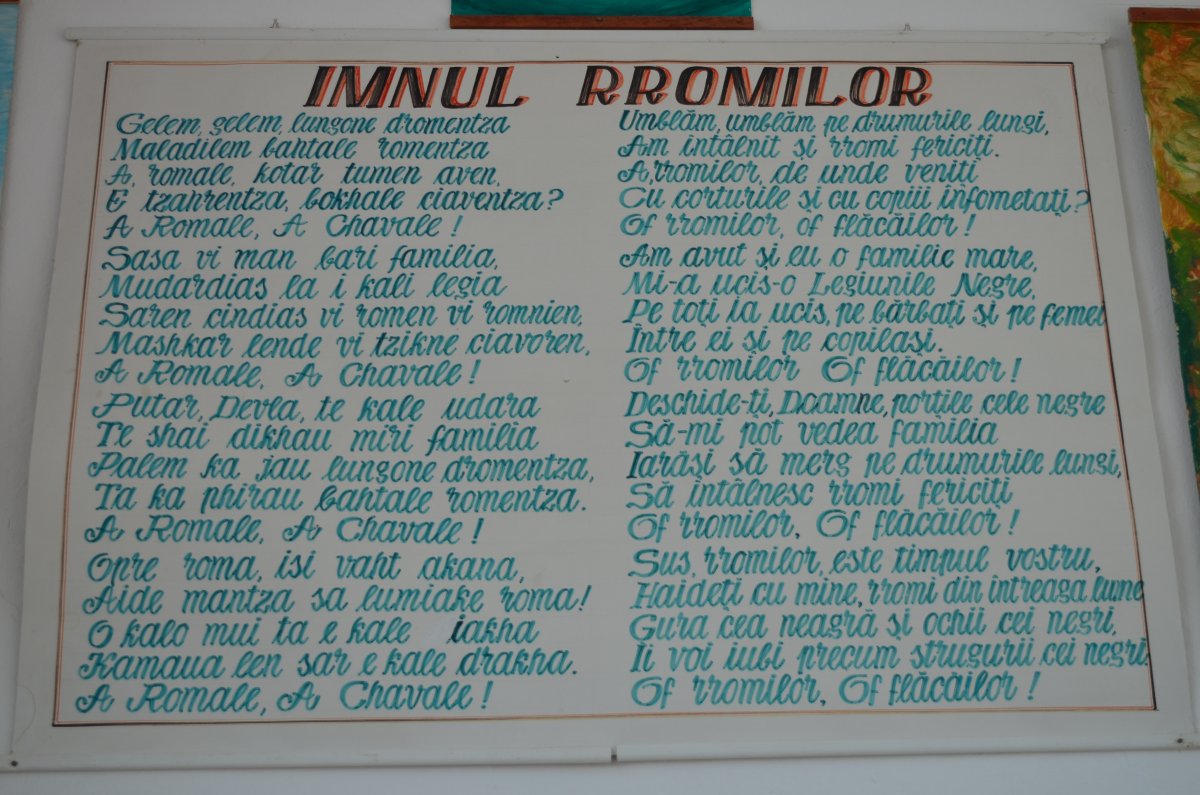 IMNUL RROMILOR
Gelem, gelem, lungone dromentza
Maladilem bahtale romentza
A, romale, kotar tumen aven,
E tzahrentza, bokhale ciaventza?
A Romale, A Chavale!
Sasa vi man bari familia,
Mudardias la i kali legia
Saren cindias vi romen vi romnien,
Mashkar lende vi tzikne ciavoren,
A Romale, A Chavale!
Putar, Devla, te kale udara
Te shai dikhau miri familia
Palem ka jau lungone dromentza,
Ta ka phirau bahtale romentza.
A Romale, A Chavale!
Opre roma, isi vaht akana,
Aide mantza sa lumiake roma!
O kalo mui ta e kale iakha
Kamaua len sar e kale drakha.
A Romale, A Chavale!
Umblăm, umblăm pe drumurile lungi,
Am întâlnit și rromi fericiți.
A, rromilor, de unde veniți
Cu corturile și cu copiii înfometați?
Of rromilor, of flăcăilor!
Am avut și eu o familie mare,
Mi-a ucis-o Legiunile Negre,
Pe toți ia ucis, pe bărbați și pe femei
Între ei și pe copilași.
Of rromilor Of flăcăilor!
Deschide-ți, Doamne, porțile cele negre
Să-mi pot vedea familia
Iarăși să merg pe drumurile lungi,
Să întâlnesc rromi fericiți
Of rromilor, Of flăcăilor!
Sus, rromilor, este timpul vostru,
Haideți cu mine, rromi din întreaga lume
Gura cea neagră și ochii cei negri,
Ii voi iubi precum strugurii cei negri.
Of rromilor, Of flăcăilor!